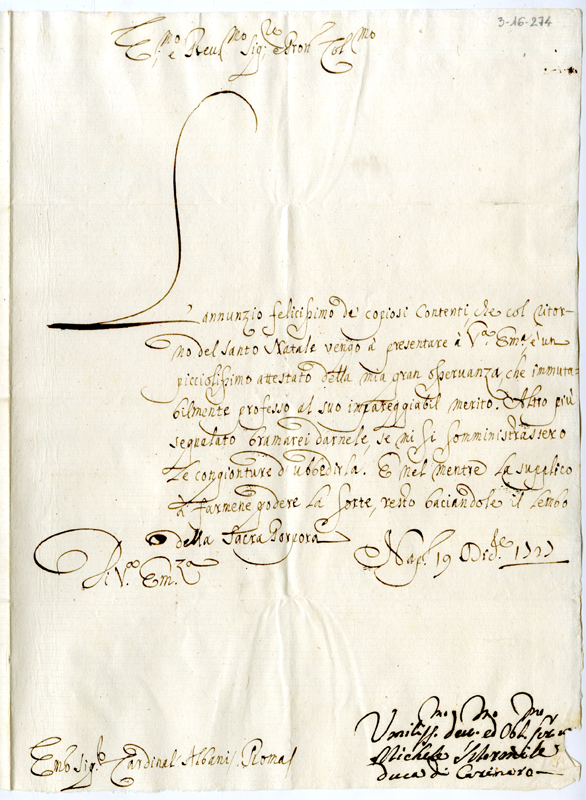 3-16-274
E.mo e Reu.mo Sig.re e Pron Col.mo
L'annunzio felicissimo de copiosi Contenti che col ritor-
no del Santo Natale vengo à presentare à V.a Em.a è un
picciolissimo attestato della mia gran osseruanza, che immuta-
bilmente professo al suo impareggiabil merito. Altro più
segnalato bramarei darnele, se mi si somministrassero
le congionture d'ubbedirla. E nel mentre la supplico
à farmene godere la sorte, resto baciandole il Lembo
della Sacra Porpora
Di V.a Em.za Nap. 19 Dec.
Umiliss.mo deu.mo ed Obl.mo
Michele
duca di Carinaro
Em.o Sig.r Cardinal Albani. Roma